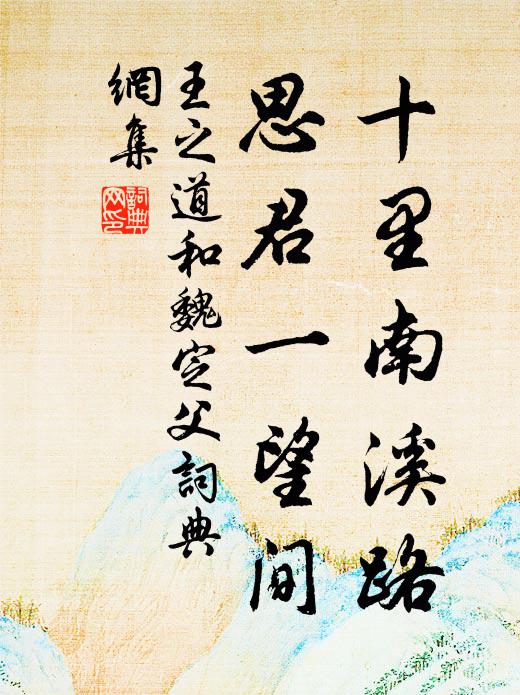 十里南溪路
思君一望间
王之道和魏定父詞典
網集
詞典网印